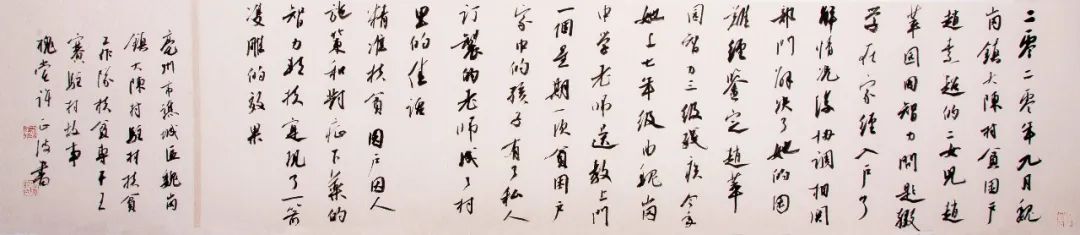 二零二零年九月魏
岗镇大陈村贫困户
赵克超的二女儿赵
苹因智力问题辍
学在家经入户了
解情况后协调相关
部门解决了她的困
难经鉴定赵苹
因智力三级残疾今年
她上七年级由魏岗
中学老师送教上门
一个星期一次贫困户
家中的孩子有了私人
订制的老师成了村
里的佳话
精准扶贫因户因人
施策和对症下药的
智力帮扶实现了一箭
双雕的效果
亳州市谯城区魏岗
镇大陈村驻村扶贫
工作队扶贫专干王
赛驻村故事
槐堂许正波书